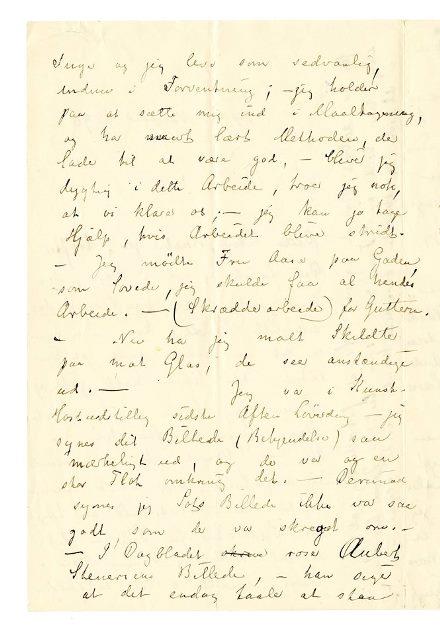 Inger og jeg leve som sedvanlig,
endnu i Forventning; – jeg holder
paa at sætte mig ind i Maaltagning,
og har lært Methoden, de
lade til at være god, – blive jeg
dygtig i dette Arbeide, troer jeg nok,
at vi klare os; – jeg kan jo tage
Hjælp, hvis Arbeidet blive stridt. –
– Jeg mødte Fru Aase paa Gaden
som lovede, jeg skulde faa al hendes
Arbeide. – (Skrædderarbeide) for Guttern.
– Nu ha jeg malt Skildte
paa mat Glas, de see anstændige
ud. – Jeg va i Kunst-
Høstudstilling sidste Aften Løverdag – jeg
synes dit Billede (Bekyndelse) saa
mærkeligt ud, og de va og en
stor Flok omkring det. – Derimod
synes jeg Billede ikke va saa
godt som de va skreget om. –
– I Dagbladet rose Aubert
Billede, – han sige
at det endog taale at staa